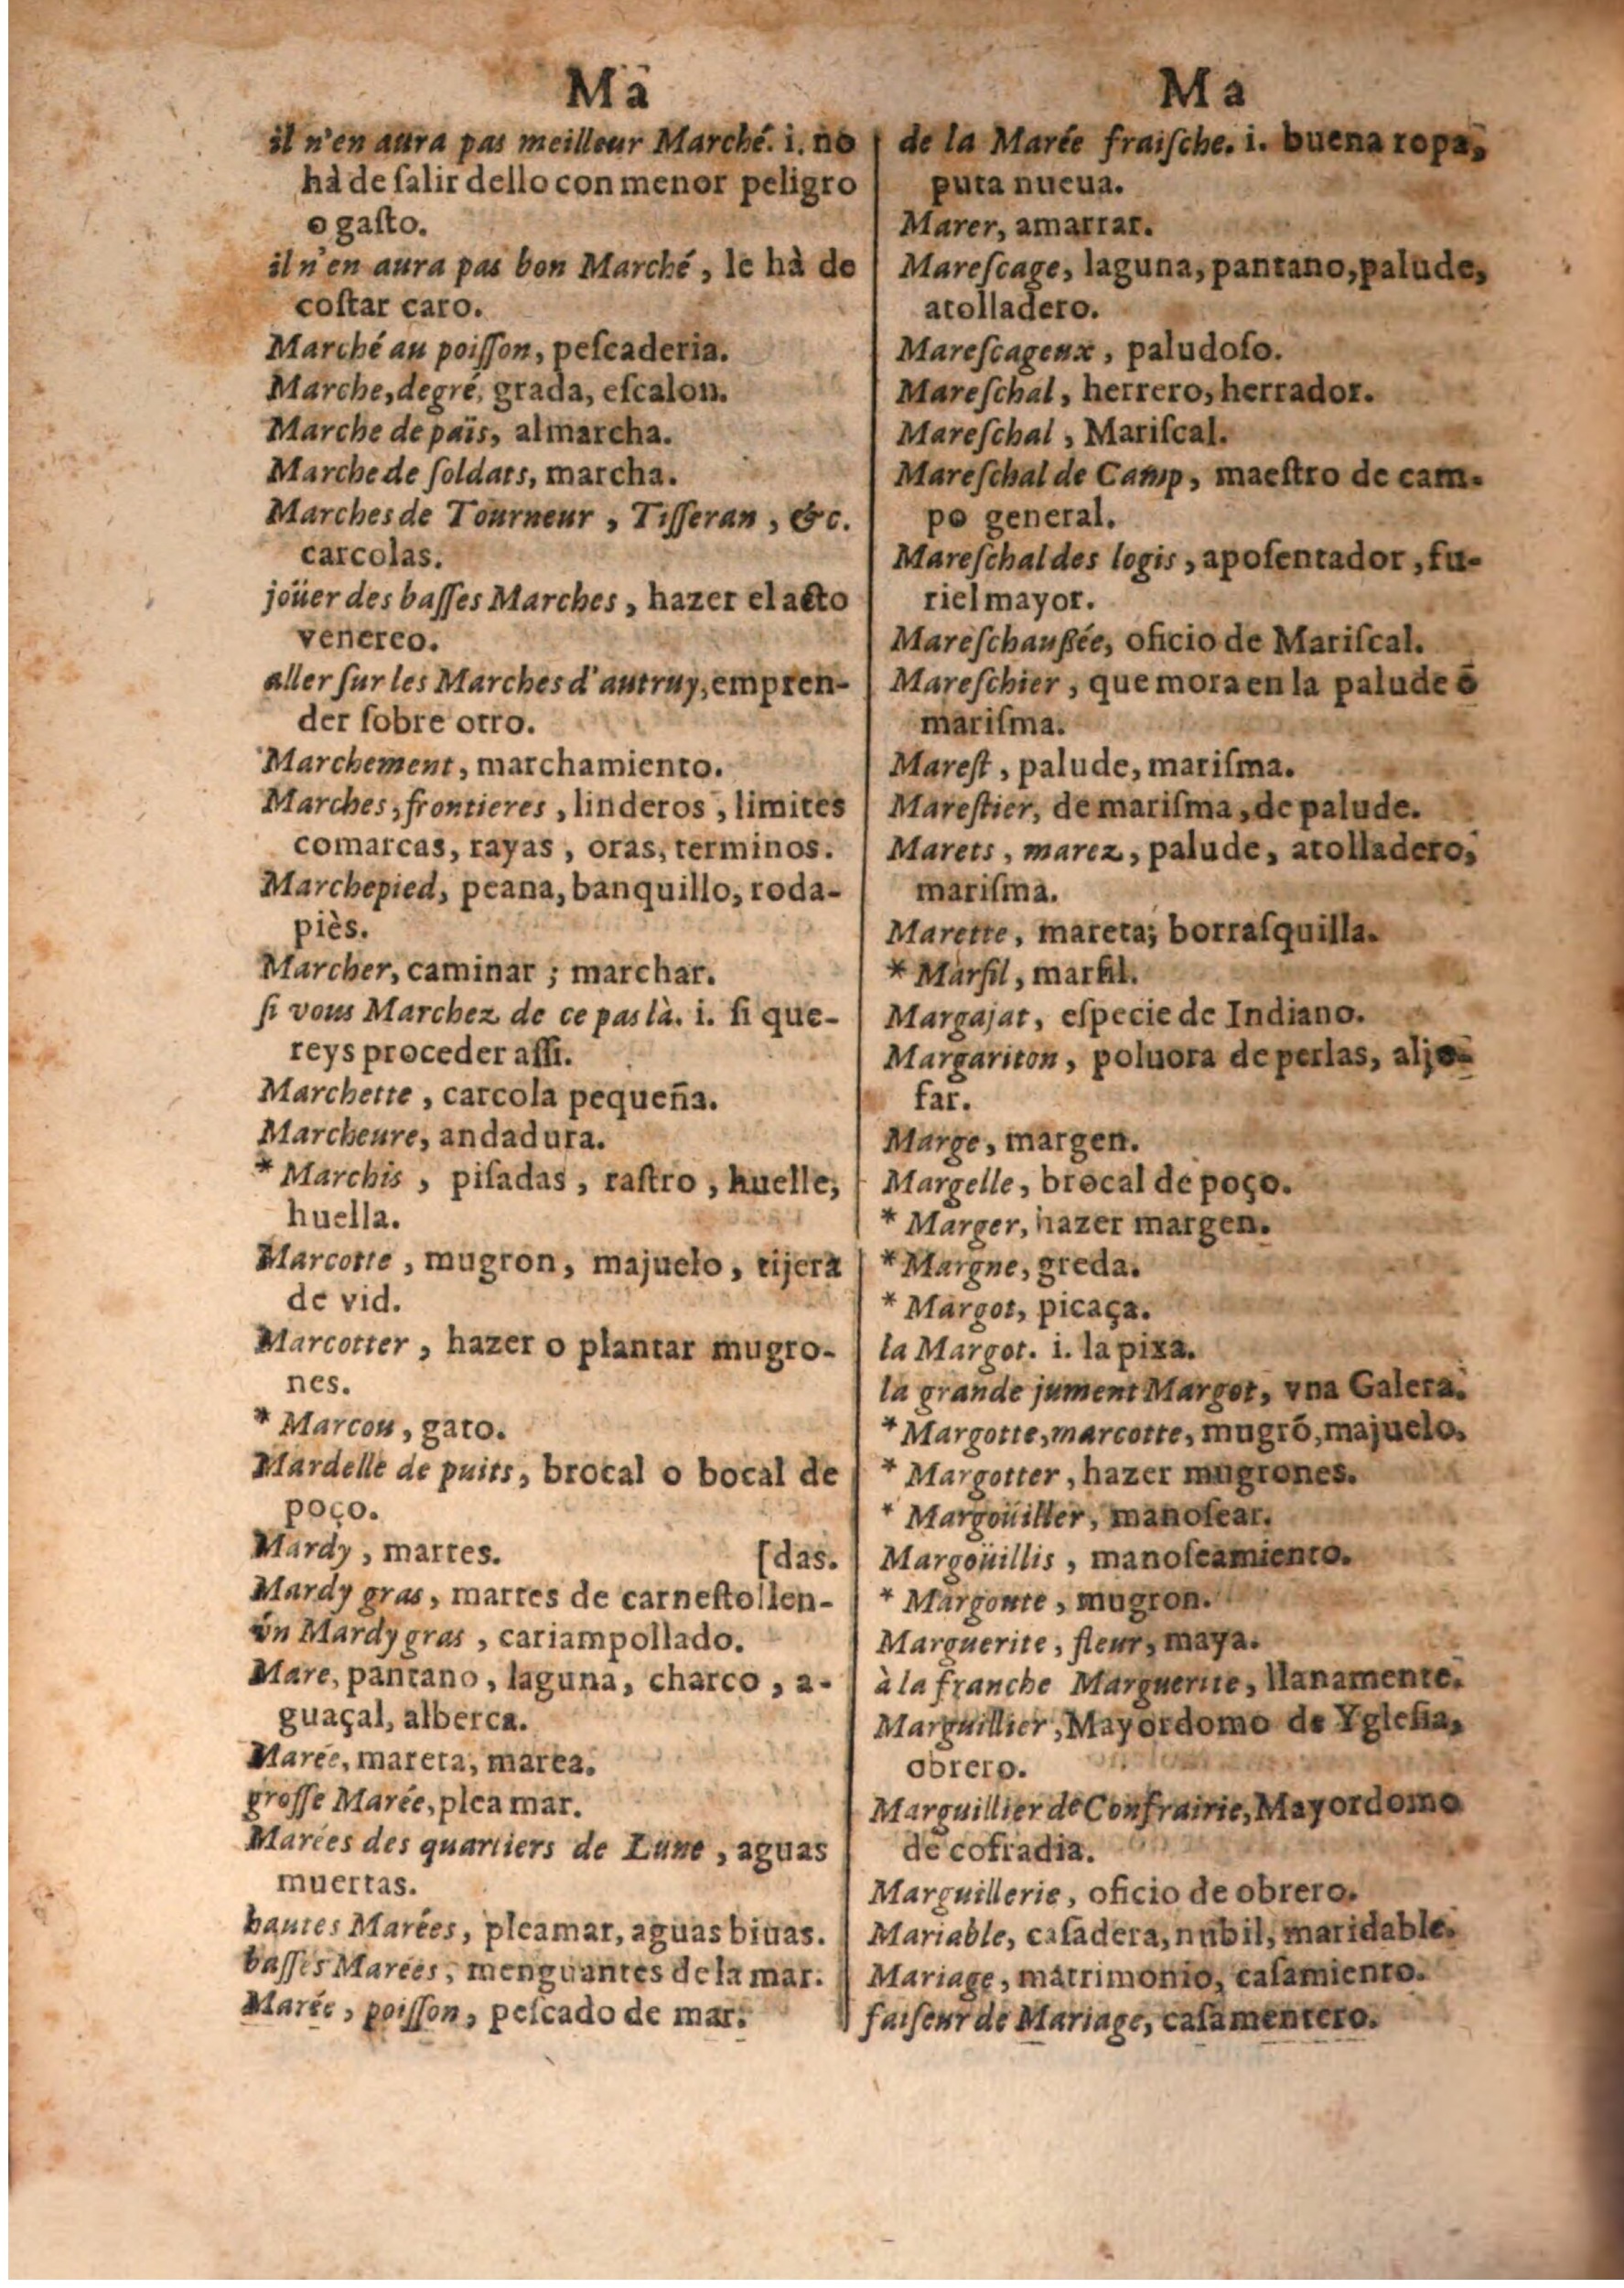 Ma
il n'en aura pas meilleur Marché. i. no
hà de ſalir dello con menor peligro
o gaſto.
il n'en aura pas bon Marché, le hà de
coſtar caro.
Marché au poiſſon, peſcaderia.
Marche, degré, grada, eſcalon.
Marche de païs, almarcha.
Marche de ſoldats, marcha.
Marches de Tourneur, Tiſſeran, &c.
carcolas.
joüer des baſſes Marches, hazer el acto
venereo.
aller ſur les Marches d'autruy, empren-
der ſobre otro.
Marchement, marchamiento.
Marches, frontieres, linderos, limites
comarcas, rayas, oras, terminos.
Marchepied, peana, banquillo, roda-
piès.
Marcher, caminar; marchar.
ſi vous Marchez de ce pas là. i. ſi que-
reys proceder aſſi.
Marchette, carcola pequeña.
Marcheure, andadura.
* Marchis, piſadas, raſtro, huelle,
huella.
Marcotte, mugron, majuelo, tijera
de vid.
Marcotter, hazer o plantar mugro-
nes.
* Marcou, gato.
Mardelle de puits, brocal o bocal de
poço.
Mardy, martes. [das.
Mardy gras, martes de carneſtollen-
vn Mardy gras, cariampollado.
Mare, pantano, laguna, charco, a-
guaçal, alberca.
Marée, mareta, marea.
groſſe Marée, plea mar.
Marées des quartiers de Lune, aguas
muertas.
hautes Marées, pleamar, aguas biuas.
baſſes Marées, menguantes de la mar.
Marée, poiſſon, peſcado de mar.
Ma
de la Marée fraiſche. i. buena ropa,
puta nueua.
Marer, amarrar.
Mareſcage, laguna, pantano, palude,
atolladero.
Mareſcageux, paludoſo.
Mareſchal, herrero, herrador.
Mareſchal, Mariſcal.
Mareſchal de Camp, maeſtro de cam-
po general.
Mareſchal des logis, apoſentador, fu-
riel mayor.
Mareſchaußée, oficio de Mariſcal.
Mareſchier, que mora en la palude ō
mariſma.
Mareſt, palude, mariſma.
Mareſtier, de mariſma, de palude.
Marets, marez, palude, atolladero,
mariſma.
Marette, mareta; borraſquilla.
* Marfil, marfil.
Margajat, eſpecie de Indiano.
Margariton, poluora de perlas, aljo-
far.
Marge, margen.
Margelle, brocal de poço.
* Marger, hazer margen.
* Margne, greda.
* Margot, picaça.
la Margot. i. la pixa.
la grande jument Margot, vna Galera.
* Margotte, marcotte, mugrō, majuelo.
* Margotter, hazer mugrones.
* Margoüiller, manoſear.
Margoüillis, manoſeamiento.
* Margoute, mugron.
Marguerite, fleur, maya.
à la franche Marguerite, llanamente.
Marguillier, Mayordomo de Ygleſia,
obrero.
Marguillier de Confrairie, Mayordomo
de cofradia.
Marguillerie, oficio de obrero.
Mariable, caſadera, nubil, maridable.
Mariage, matrimonio, caſamiento.
faiſeur de Mariage, caſamentero.